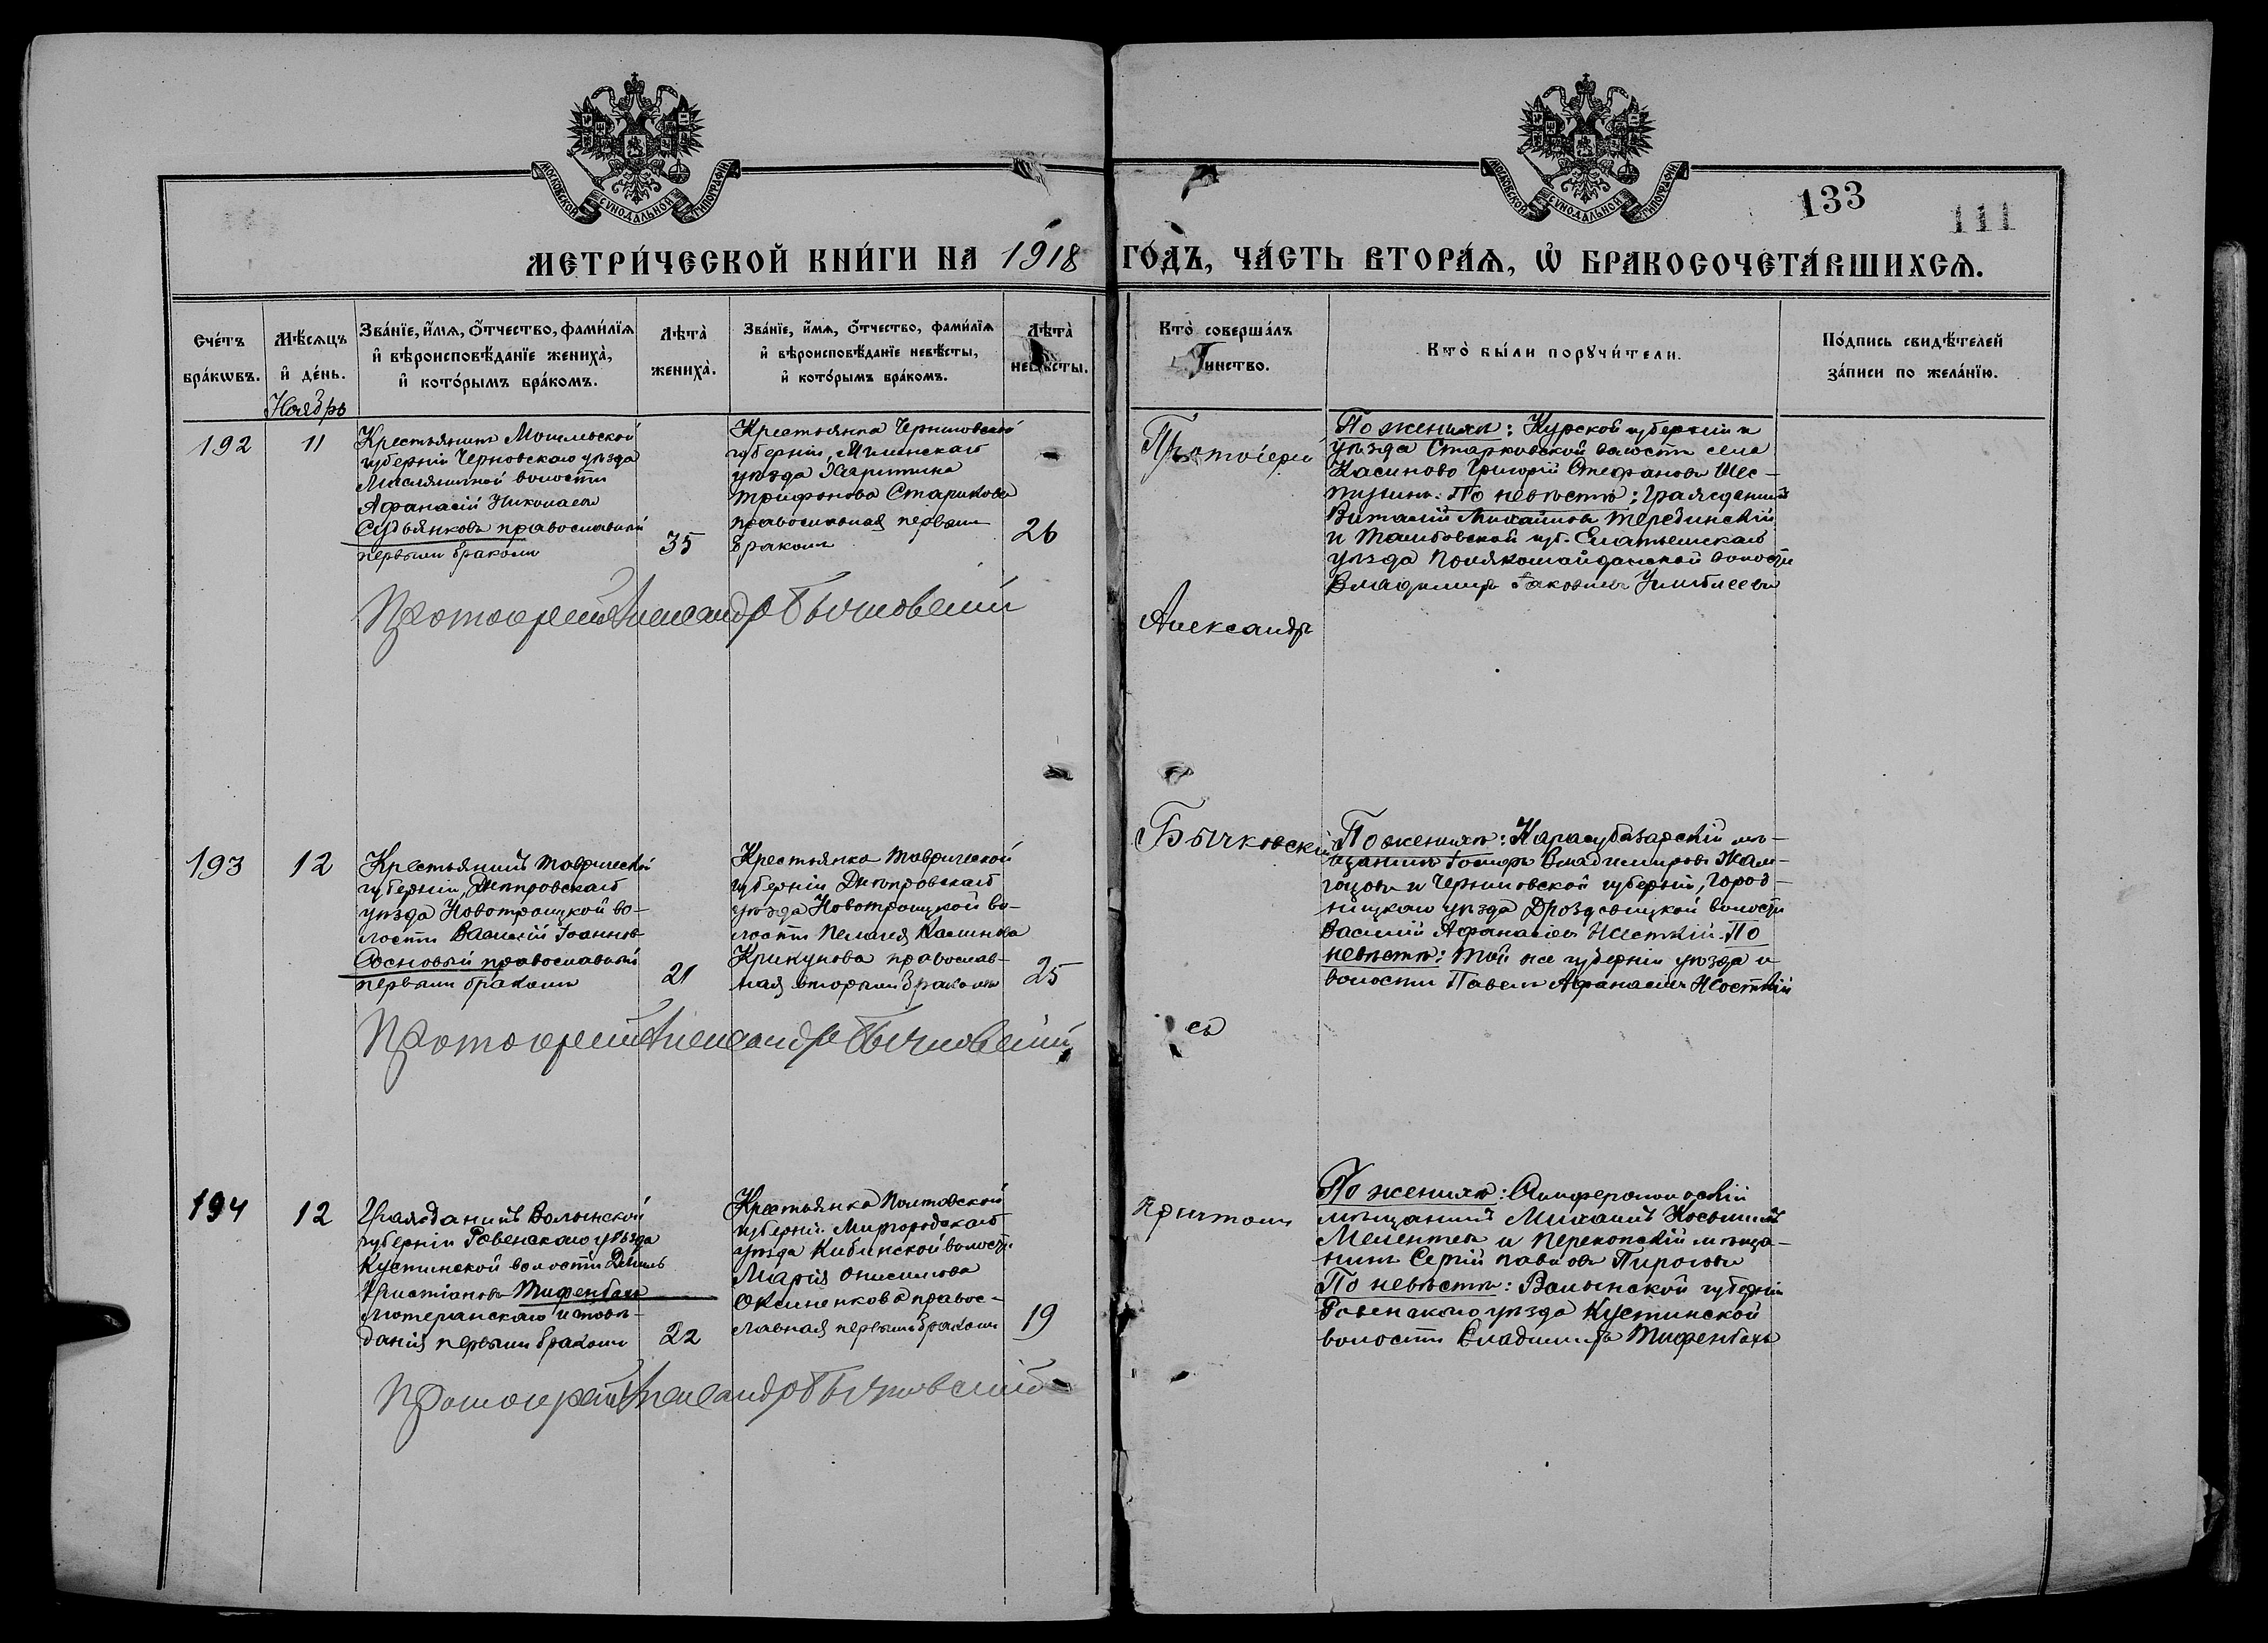 МОСКОВСКОЙ СѴНОДАЛЬНОЙ ТИПОГРАФІИ
МОСКОВСКОЙ СѴНОДАЛЬНОЙ ТИПОГРАФІИ
133
111
МЕТРИ́ЧЕСКОЙ КНИ́ГИ НА 1918 ГО́ДЪ, ЧА́СТЬ ВТОРА́Ѧ, Ѡ҆ БРАКОСОЧЕТА́ВШИХСѦ.
Сче́тъ
бра́кѡвъ.
Мѣ́сѧцъ
и҆ де́нь.
Зва́нїе, и҆́мѧ, ѻ҆́тчество, фами́лїѧ
и҆ вѣроисповѣ́данїе жениха̀,
и҆ кото́рымъ бра́комъ.
Лѣта̀
жениха̀.
Зва́нїе, и҆́мѧ, ѻ҆́тчество, фами́лїѧ
и҆ вѣроисповѣ́данїе невѣ́сты,
и҆ кото́рымъ бра́комъ.
Лѣта̀
невѣ́сты.
Кто̀ соверша́лъ
Та́инство.
Кто̀ бы́ли порꙋчи́тели.
По́дпись свидѣ́телей
за́писи по жела́нїю.
Ноябрь
192
11
Крестьянинъ Могилевской
губерніи Чериковскаго уѣзда
волости
Афанасій Николаевъ
Судьянковъ православный
первымъ бракомъ
35
Крестьянка Черниговской
губерніи, Мглинскаго
уѣзда Харитина
Трифонова Старикова
православная первымъ
бракомъ
26
Протоіерей
Александръ
Бычковскій
съ
причтомъ
По женихѣ: Курской губерніи и
уѣзда Старковской волости села
Касиново Григорій Стефановъ Шес-
По невѣстѣ: Гражданинъ
Виталій Михайловъ Терединскій
и Тамбовской губ. Елатьмскаго
уѣзда волости
Владимиръ Іаковлевъ
Протоіерей Александръ Бычковскій
193
12
Крестьянинъ Таврической
губерніи, Днѣпровскаго
уѣзда Новотроицкой во-
лости Василій Іоанновъ
Сосновый православный
первымъ бракомъ
21
Крестьянка Таврической
губерніи Днѣпровскаго
уѣзда Новотроицкой во-
лости Пелагея Калинова
Крикунова православ-
ная вторымъ бракомъ
25
По женихѣ: Карасубазарскій мѣ-
щанинъ Іосифъ Владимировъ Жам-
и Черниговской губерніи, Город-
ницкаго уѣзда Дроздовицкой волости
Василій Афанасіевъ По
невѣстѣ: Той же губерніи уѣзда и
волости Павелъ Афанасіевъ
Протоіерей Александръ Бычковскій
194
12
Гражданинъ Волынской
губерніи Ровенскаго уѣзда
Кустинской волости
Христіановъ Тифенбахъ
лютеранскаго исповѣ-
данія первымъ бракомъ
22
Крестьянка Полтавской
губерніи Миргородскаго
уѣзда Кибинской волости
Марія Онисимова
Оксиненкова правос-
лавная первымъ бракомъ
19
По женихѣ: Симферопольскій
мѣщанинъ Михаилъ Косьминъ
Мелентьев и Перекопскій мѣща-
нинъ Сергій Павловъ Пироговъ
По невѣстѣ: Волынской губерніи
Ровенскаго уѣзда Кустинской
волости Владимиръ Тифенбахъ
Протоіерей Александръ Бычковскій